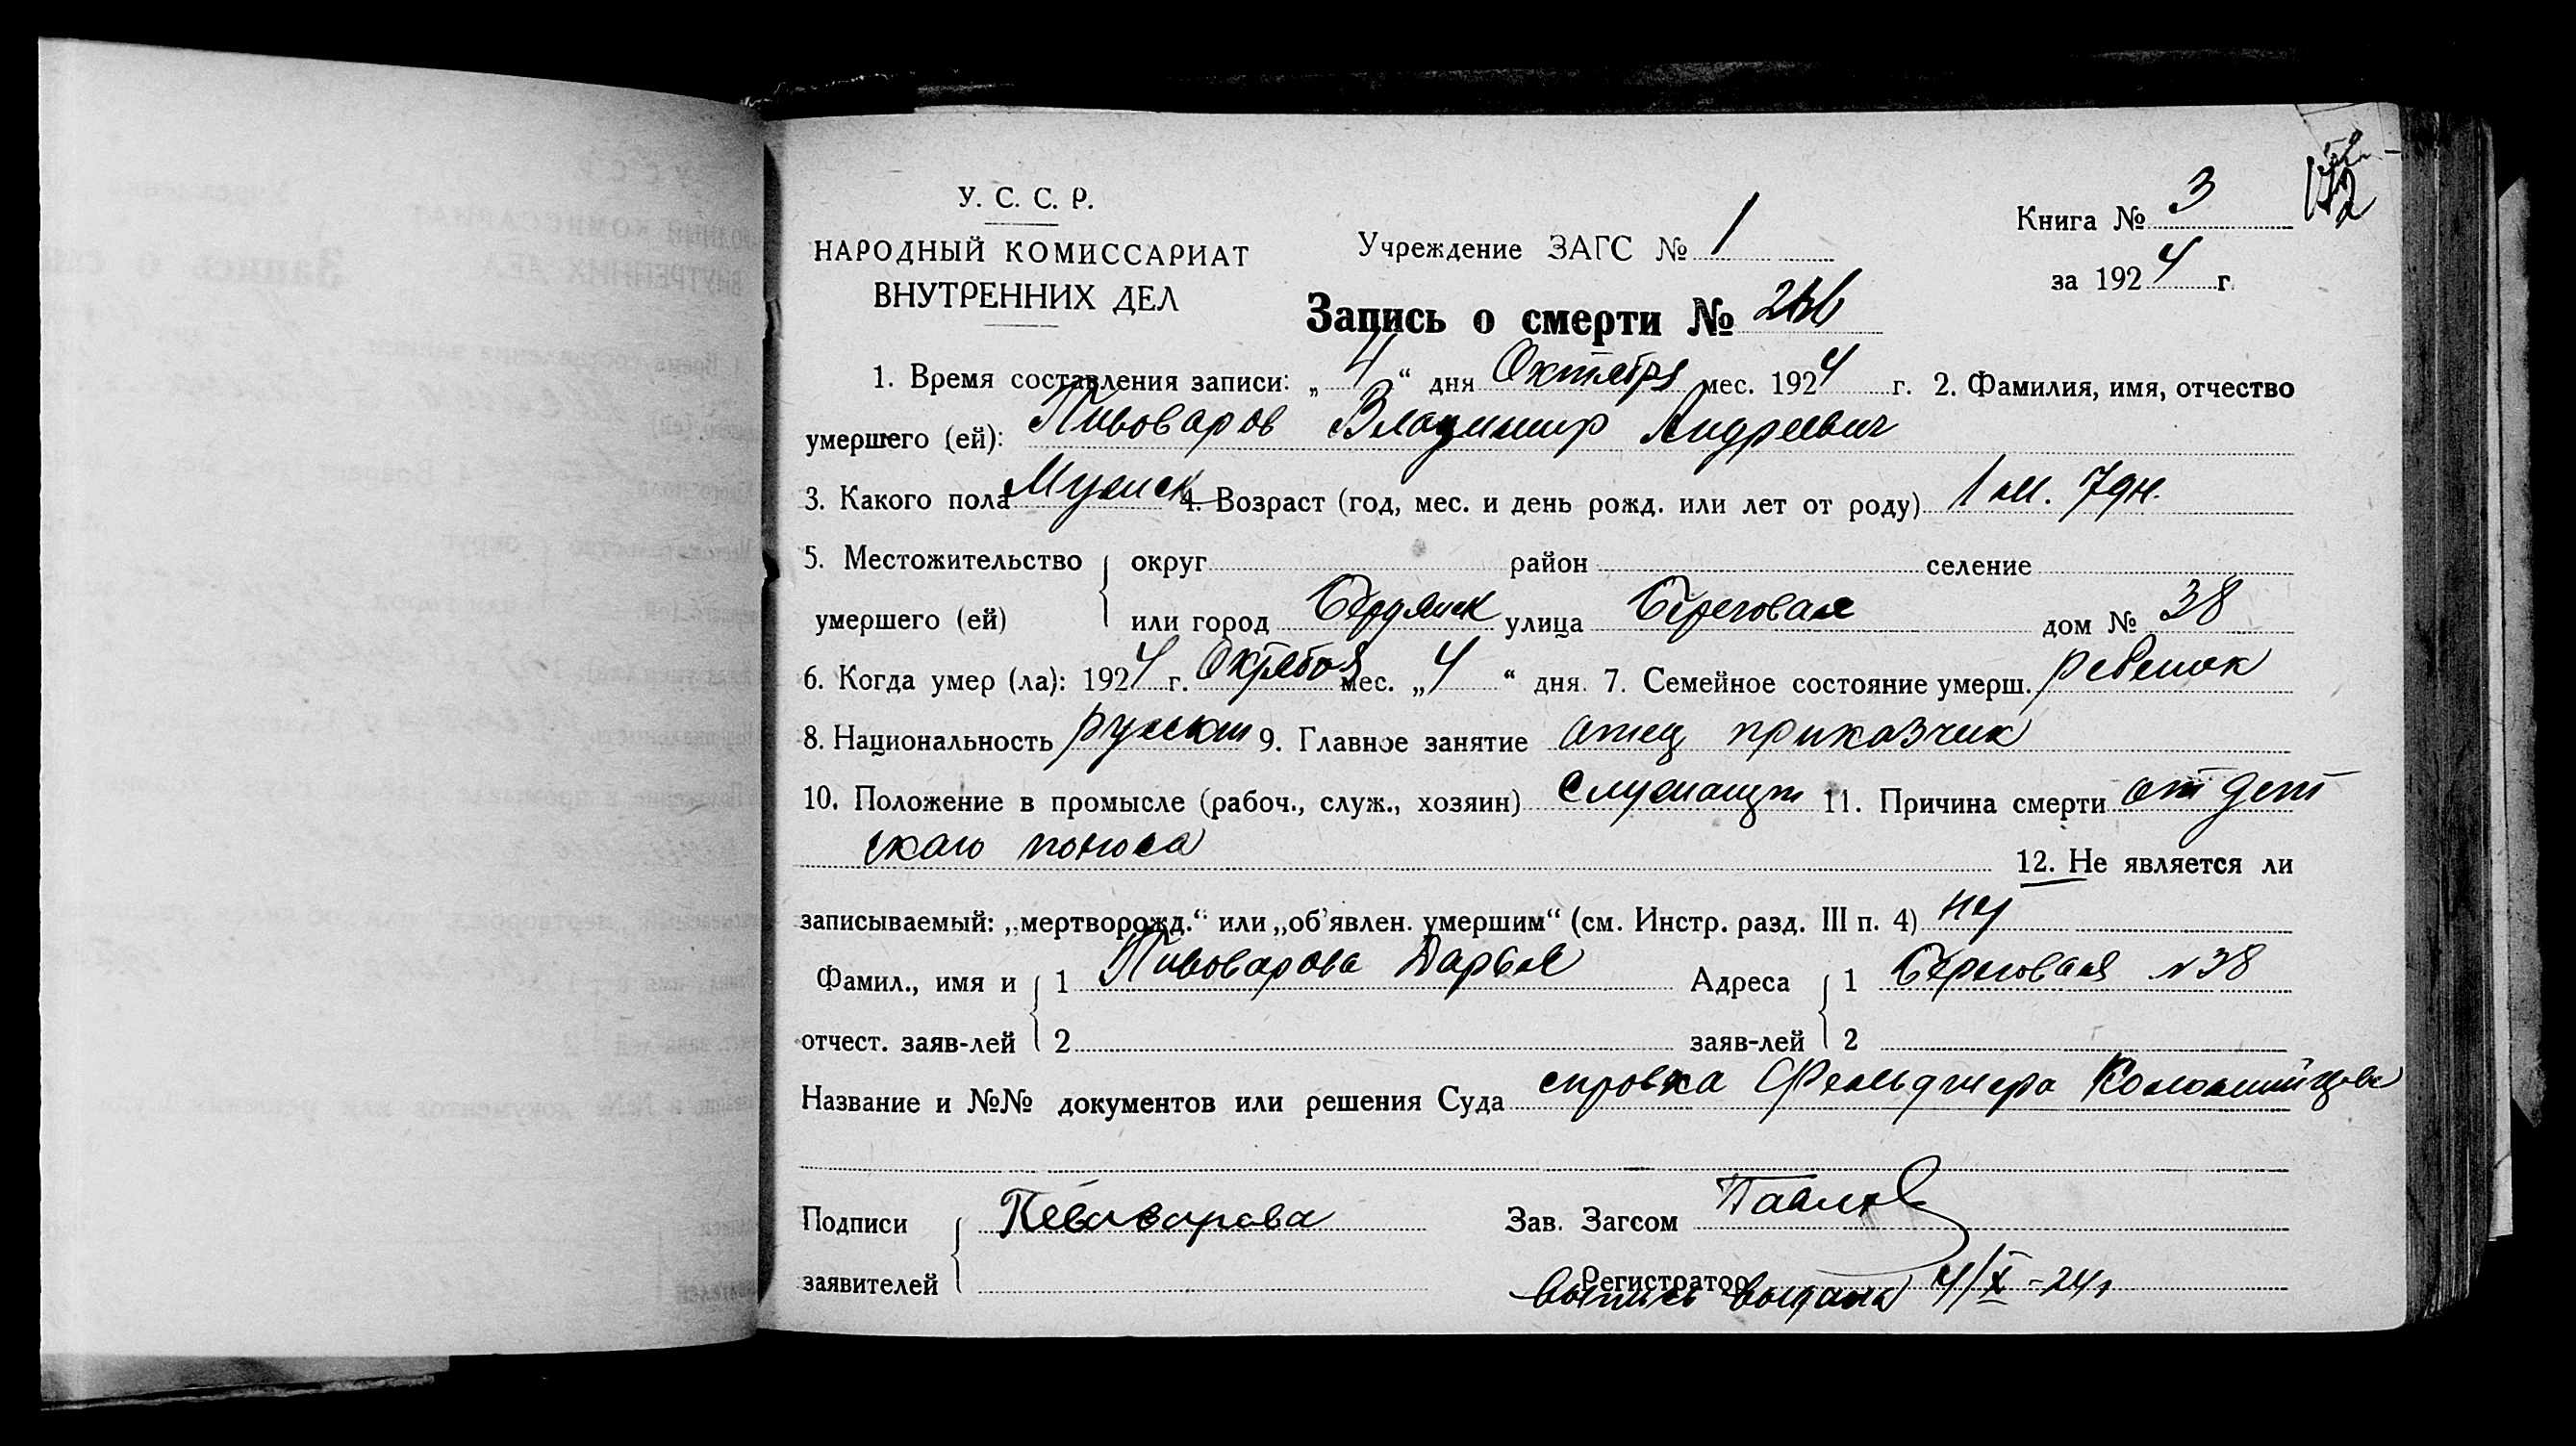 У. С. С. Р.
НАРОДНЫЙ КОМИССАРИАТ
ВНУТРЕННИХ ДЕЛ
Учреждение ЗАГС № 1
Книга № 3
за 1924 г.
Запись о смерти №
1. Время составления записи: „4“ дня Октября мес. 1924 г. 2. Фамилия, имя, отчество
умершего (ей): Пивоваров Владимир Андреевич
3. Какого пола Мужск 4. Возраст (год, мес. и день рожд. или лет от роду) 1 м. 7 дн.
5. Местожительство округ район селение
умершего (ей) или город Бердянск улица Береговая дом № 38
6. Когда умер (ла): 1924 г. Октября мес. „4“ дня. 7. Семейное состояние умерш. ребенок
8. Национальность русский 9. Главное занятие отец приказчик
10. Положение в промысле (рабоч., служ., хозяин) служащий 11. Причина смерти от дет
скаго поноса 12. Не является ли
записываемый: „мертворожд.“ или „об’явлен. умершим“ (см. Инстр. разд. III п. 4) нет
Фамил., имя и 1 Пивоварова Дарья Адреса 1 Береговая № 38
отчест. заяв-лей 2 заяв-лей 2
Название и №№ документов или решения Суда справка Фельдшера Коломийцева
Подписи Пивоварова Зав. Загсом Павлов
заявителей Регистратор
выпись выдана 4/X-24 г